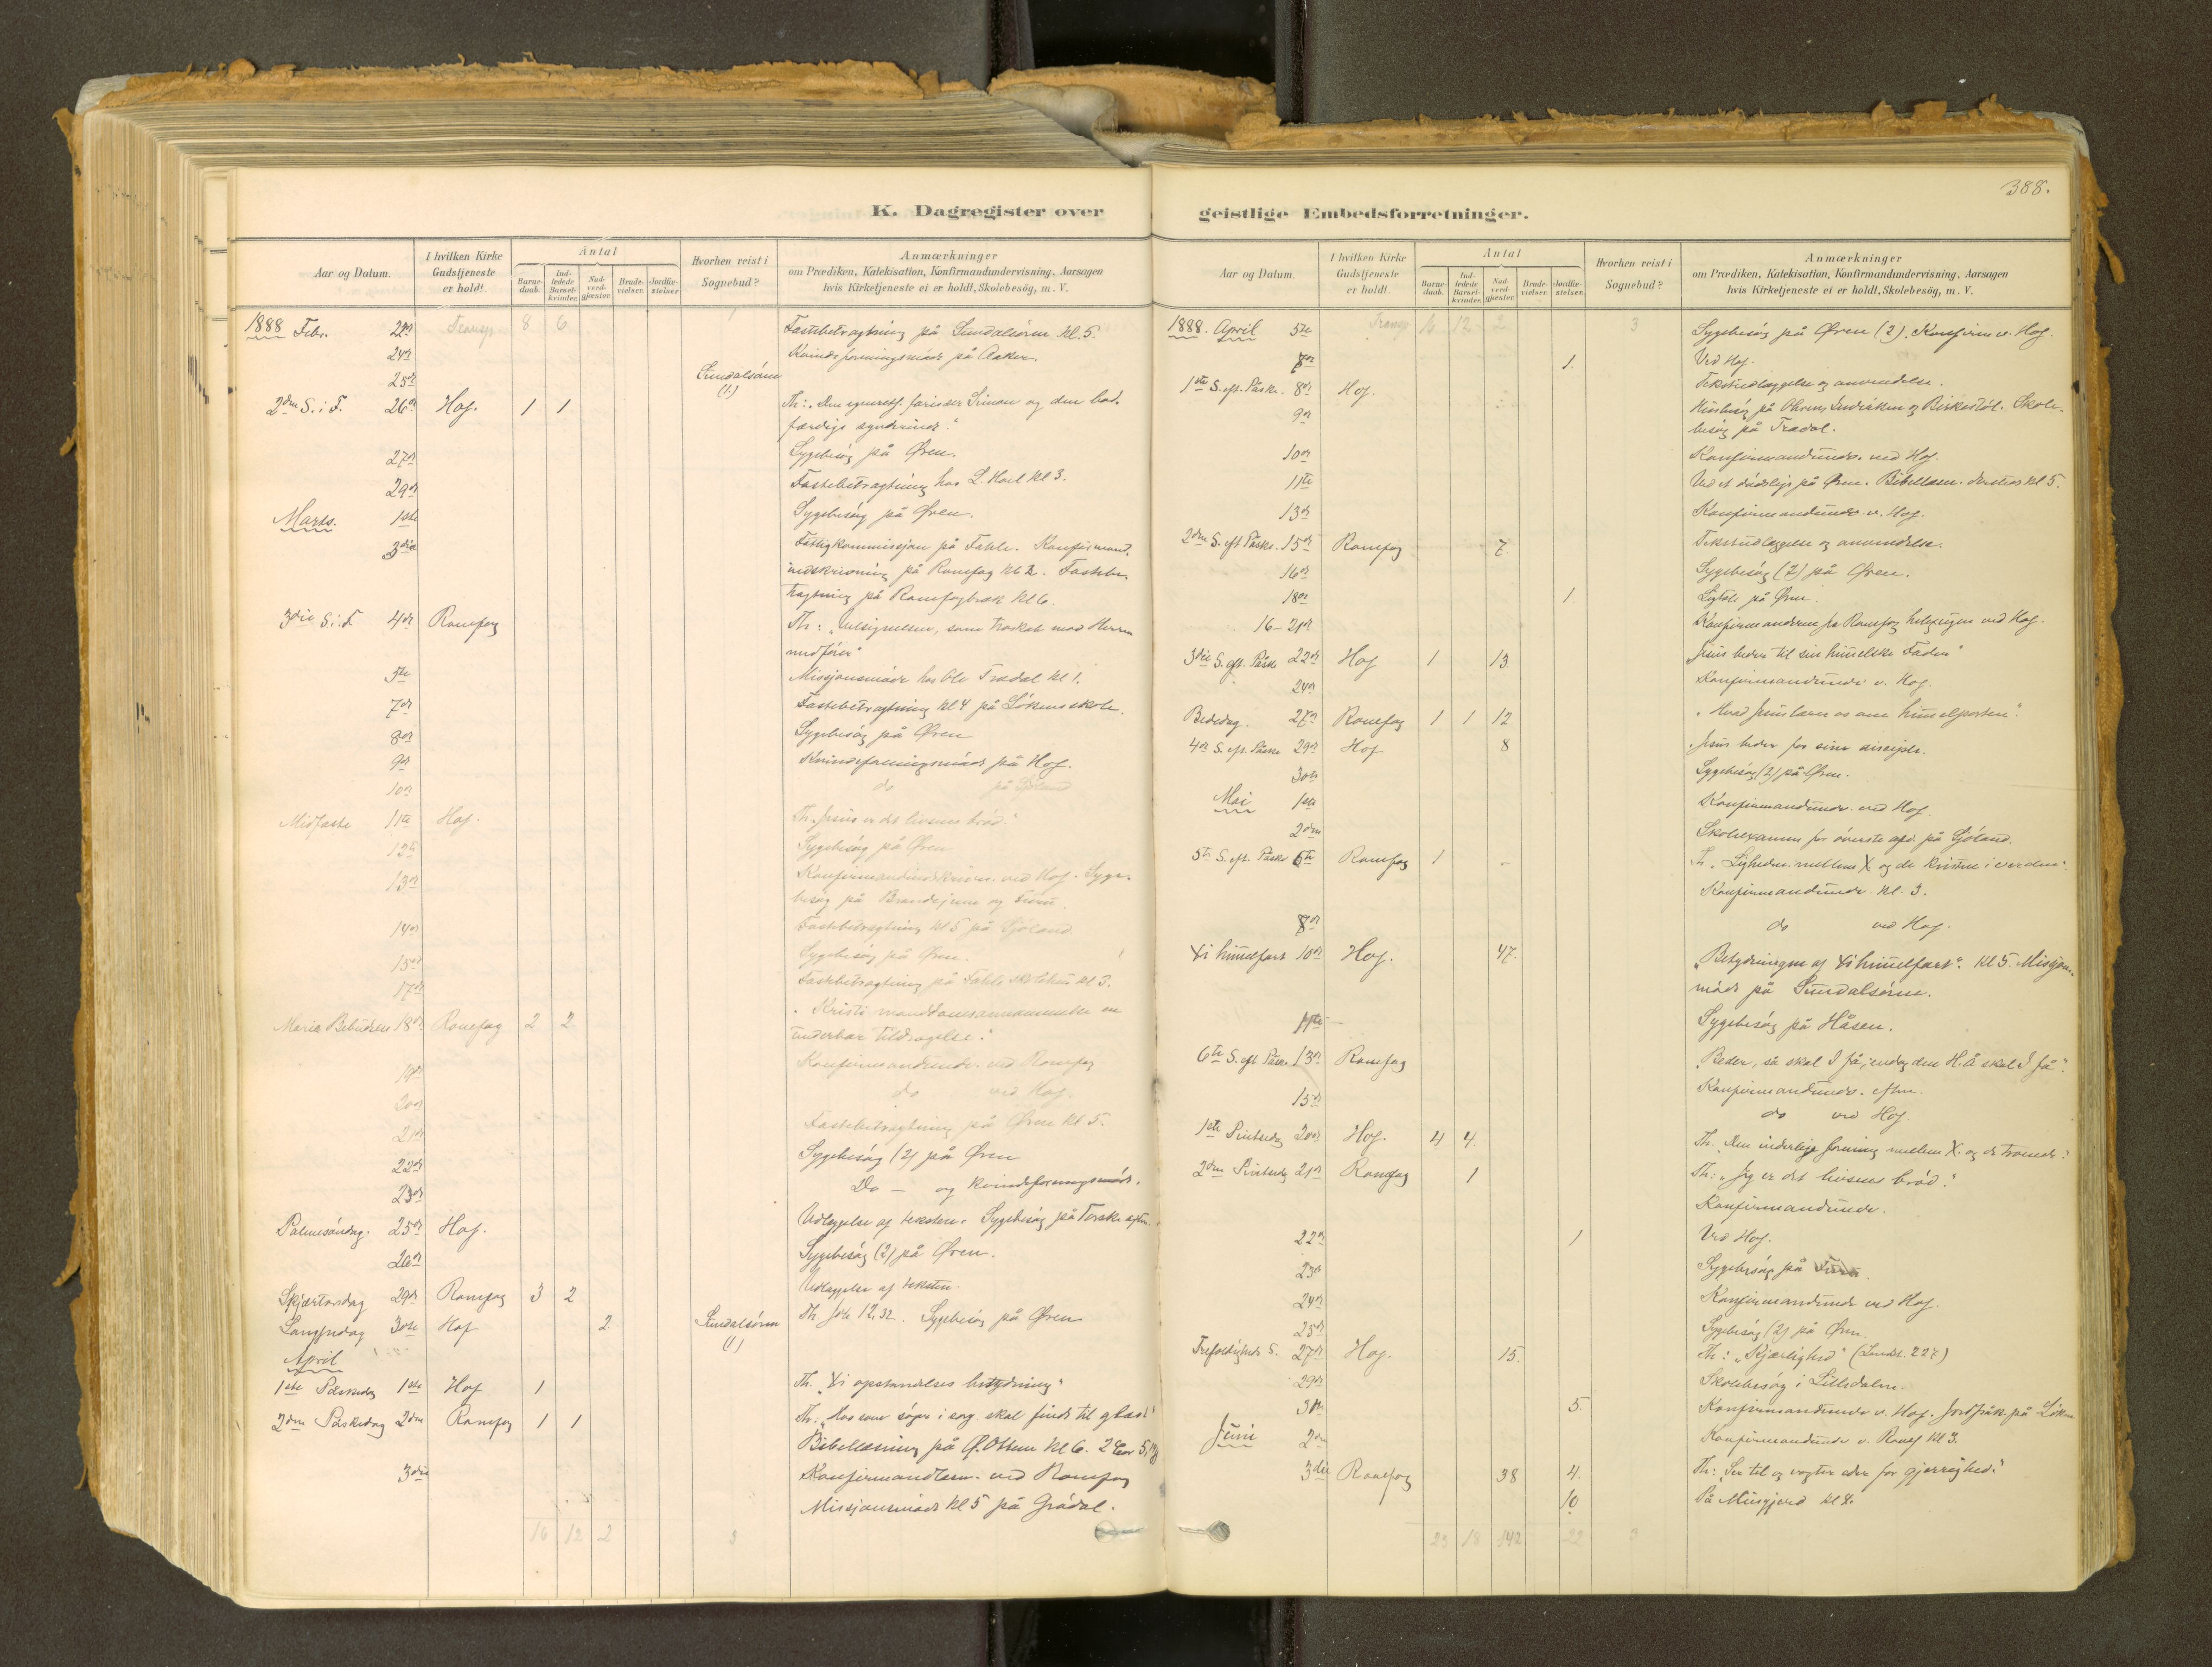 388.
K. Dagregister over
Aar og Datum.
I hvilken Kirke Gudstjeneste er holdt.
Antal
Barnedaab.
Indledede Barselkvinder.
Nadverdgjæster.
Brudevielser.
Jordfæstelser.
Hvorhen reist i Sognebud?
Anmærkninger
om Prædiken, Katekisation, Konfirmandundervisning, Aarsagen
hvis Kirketjeneste ei er holdt, Skolebesög, m. V.
1888 Febr. 22de Transp. 8 6 1 Fastebetragtning på Sundalsören kl. 5.
24de Kvindeforeningsmöde på Aaker.
25de Sundalsören (1)
2den S. i F. 26de Hof. 1 1 Th: „Den farisæer Simon og den bod-
færdige synderinde."
27de Sygebesög på Øren.
29de Fastebetragtning hos L. Hoel kl 3.
Marts. 1ste Sygebesög på Øren.
3die Fattigkommissjon på Fahle. Konfirmand-
indskrivning på Romfog kl 2. Fastebe-
tragtning på Romfogbræk kl 6.
3die S. i F. 4de Romfog Th: „Velsignelsen, som troskab mod Herren
medfører"
5te Missjonsmöde hos Ole Trædal kl 1.
7de Fastebetragtning kl 4 på Lökens skole.
8de Sygebesög på Øren
9de Kvindeforeningsmöde på Hof.
10de do på Sjöland
Midfaste 11te Hof. Th. „Jesus er det livsens bröd."
12te Sygebesög på Øren
13de Konfirmandindskrivn. ved Hof. Syge-
besög på og
14de Fastebetragtning kl 5 på Sjöland
15de Sygebesög på Øren.
17de Fastebetragtning på Fahle skolehus kl 3.
Mariæ Bebudelse 18de Romfog 2 2 „Kristi manddomsannammelse en
underbar tildragelse."
19de Konfirmandunderv. ved Romfog
20de do ved Hof.
21de Fastebetragtning på Øren kl 5.
22de Sygebesög (2) på Øren
23de Do — og kvindeforeningsmöde.
Palmesöndag. 25de Hof. Udlæggelse af teksten. Sygebesög på
26de Sygebesög (2) på Øren.
Skjærtorsdag 29de Romfog 3 2 Udlæggelse af teksten.
Langfredag 30te Hof 2 Sundalsören (1) Th. Joh 12.32. Sygebesög på Øren
April
1ste Påskedag 1ste Hof 1 Th. „Xi opstandelses betydning"
2den Påskedag 2den Romfog 1 1 Th: „Hvo som söger i sorg skal finde til glæde"
Bibellæsning på Ø. Ottem kl 6. 2 Cor 5,
3die Konfirmandlæsn. ved Romfog
Missjonsmöde kl 5 på Grödal.
16 12 2 3
geistlige Embedsforretninger.
Aar og Datum.
I hvilken Kirke Gudstjeneste er holdt.
Antal
Barnedaab.
Indledede Barselkvinder.
Nadverdgjæster.
Brudevielser.
Jordfæstelser.
Hvorhen reist i Sognebud?
Anmærkninger
om Prædiken, Katekisation, Konfirmandundervisning, Aarsagen
hvis Kirketjeneste ei er holdt, Skolebesög, m. V.
1888. April 5te Transp. 16 12 2 3 Sygebesög på Øren (2). Konfirm v. Hof.
7de 1. Ved Hof.
1ste S. eft. Påske. 8de Hof. Tekstudlæggelse og anvendelse.
9de Husbesög på og Skole-
besög på Trædal.
10de Konfirmandunderv. ved Hof.
11te Ved et dödsleje på Øren. Bibellæsn. dersteds kl 5.
13de Konfirmandunderv. v. Hof.
2den S. eft Påske. 15de Romfog 7. Tekstudlæggelse og anvendelse.
16de Sygebesög (2) på Øren.
18de 1. på Øren
16-21de Konfirmanderne fra Romfog hele ugen ved Hof.
3die S. eft. Påske 22de Hof 1 13 Jesus beder til sin himmelske Fader"
24de Konfirmandunderv. v. Hof.
Bededag. 27de Romfog 1 1 12 „Hvad Jesus lærer os om himmelporten".
4de S. eft. Påske 29de Hof 8 „Jesus beder for sine disciple.
30te Sygebesög (2) på Øren.
Mai 1ste Konfirmandunderv. ved Hof.
2den Skoleexamen for överste afd. på Sjöland.
5te S. eft. Påske 6te Romfog 1 - Th. „Ligheden mellem X og de kristne i verden"
Konfirmandunderv. kl. 3.
8de do ved Hof.
Xi himmelfart 10de Hof. 47. „Betydningen af Xi himmelfart". kl 5. Missjons-
möde på Sundalsören.
11te Sygebesög på Håsen.
6te S. eft Påske. 13de Romfog „Beder, så skal I få, endog den H. Å skal I få".
Konfirmandunderv. eftm.
15de do ved Hof
1ste Pintsedag 20de Hof. 4 4. Th. „Den inderlige forening mellem X. og de troende".
2den Pintsedag 21de Romfog 1 Th: „Jeg er det livsens bröd."
Konfirmandunderv.
22de 1 Ved Hof.
23de Sygebesög på
24de Konfirmandunderv. ved Hof.
25de Sygebesög (2) på Øren.
Trefoldigheds S. 27de Hof. 15. Th: „Kjærlighed" (Landst. 227)
29de Skolebesög i Lilledalen.
31te 5. Konfirmandunderv. v. Hof. Jordfæst. på Löken
Juni 2den Konfirmandunderv. v. Romf kl 3.
3die Romfog 38 4. Th: „Ser til og vogter eder for gjerrighed."
10. På Musgjerd kl 8.
23 18 142 22 3